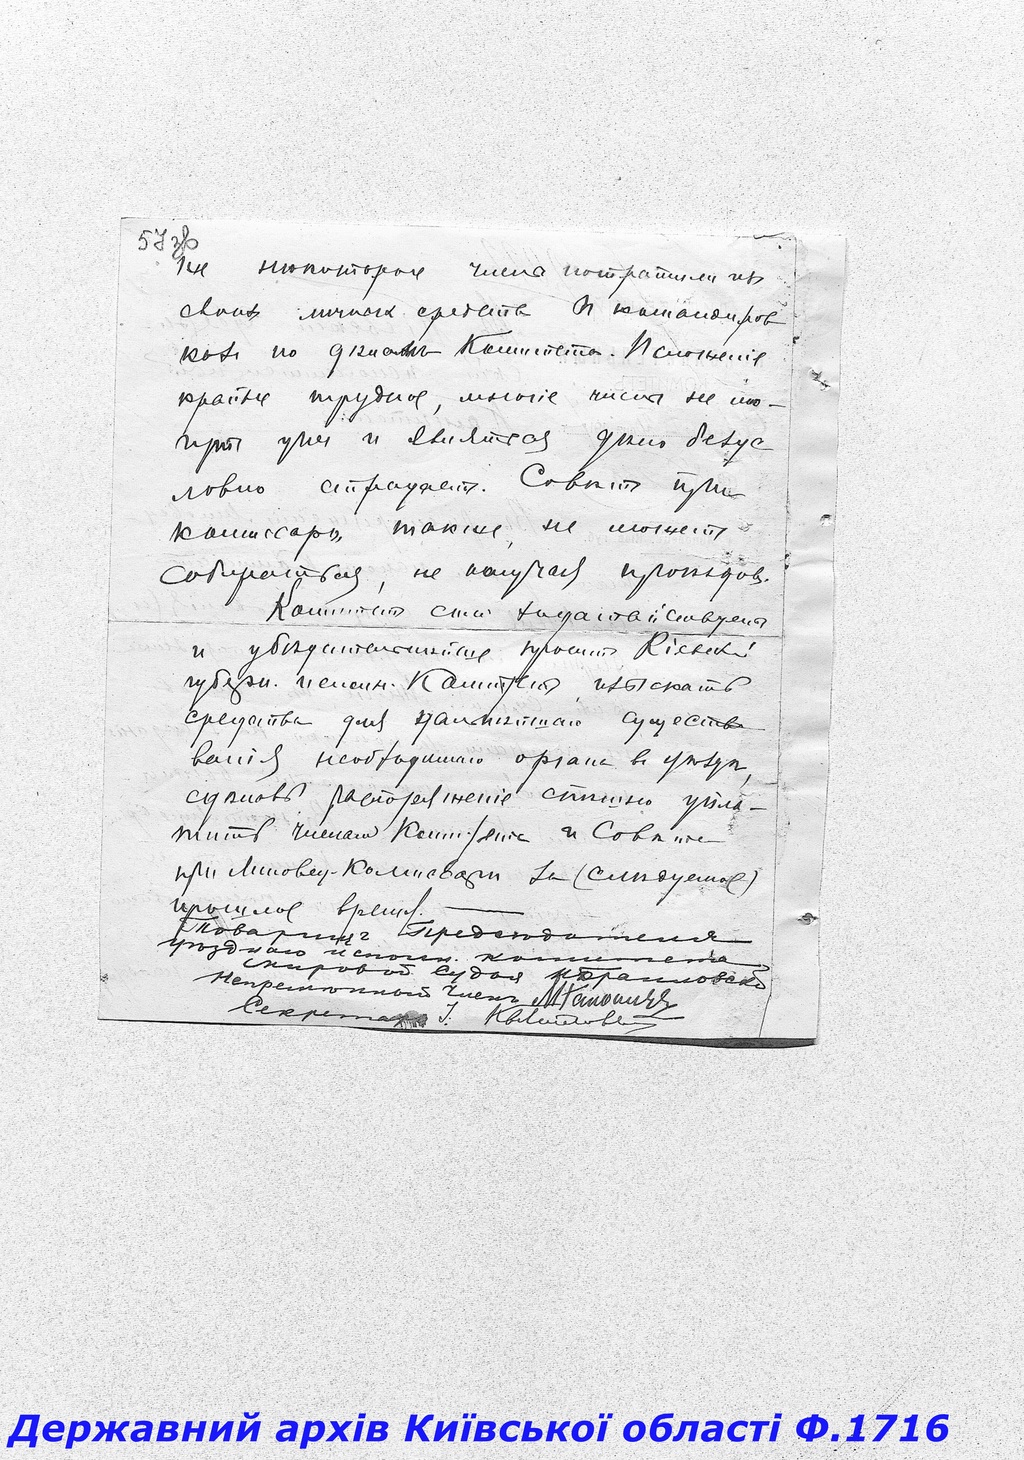 57 зв
же некоторые члены потратили из
своих личных средств в командиров
ках по делам Комитета. Положенiе
крайне трудное, многiе члены не мо-
гут уже и являться, дело безус
ловно страдает. Совет при
комиссаре также не может
собираться, не получая прогонов.
Комитет сим ходатайствует
и убедительнейше просит Кiевскiй
губерн. исполн. Комитет изыскать
средства для дальнейшаго существо
ванiя необходимаго органа в уезде,
сделать распоряженiе спешно упла-
тить членам Комитета и Совета
при Липовец. Комиссаре за (следуемое)
прошлое время. —
Товарищ Председателя
уезднаго исполн. комитета
мировой Судья
Непременный Член
Секретарь I.
Державний архів Київської області Ф.1716